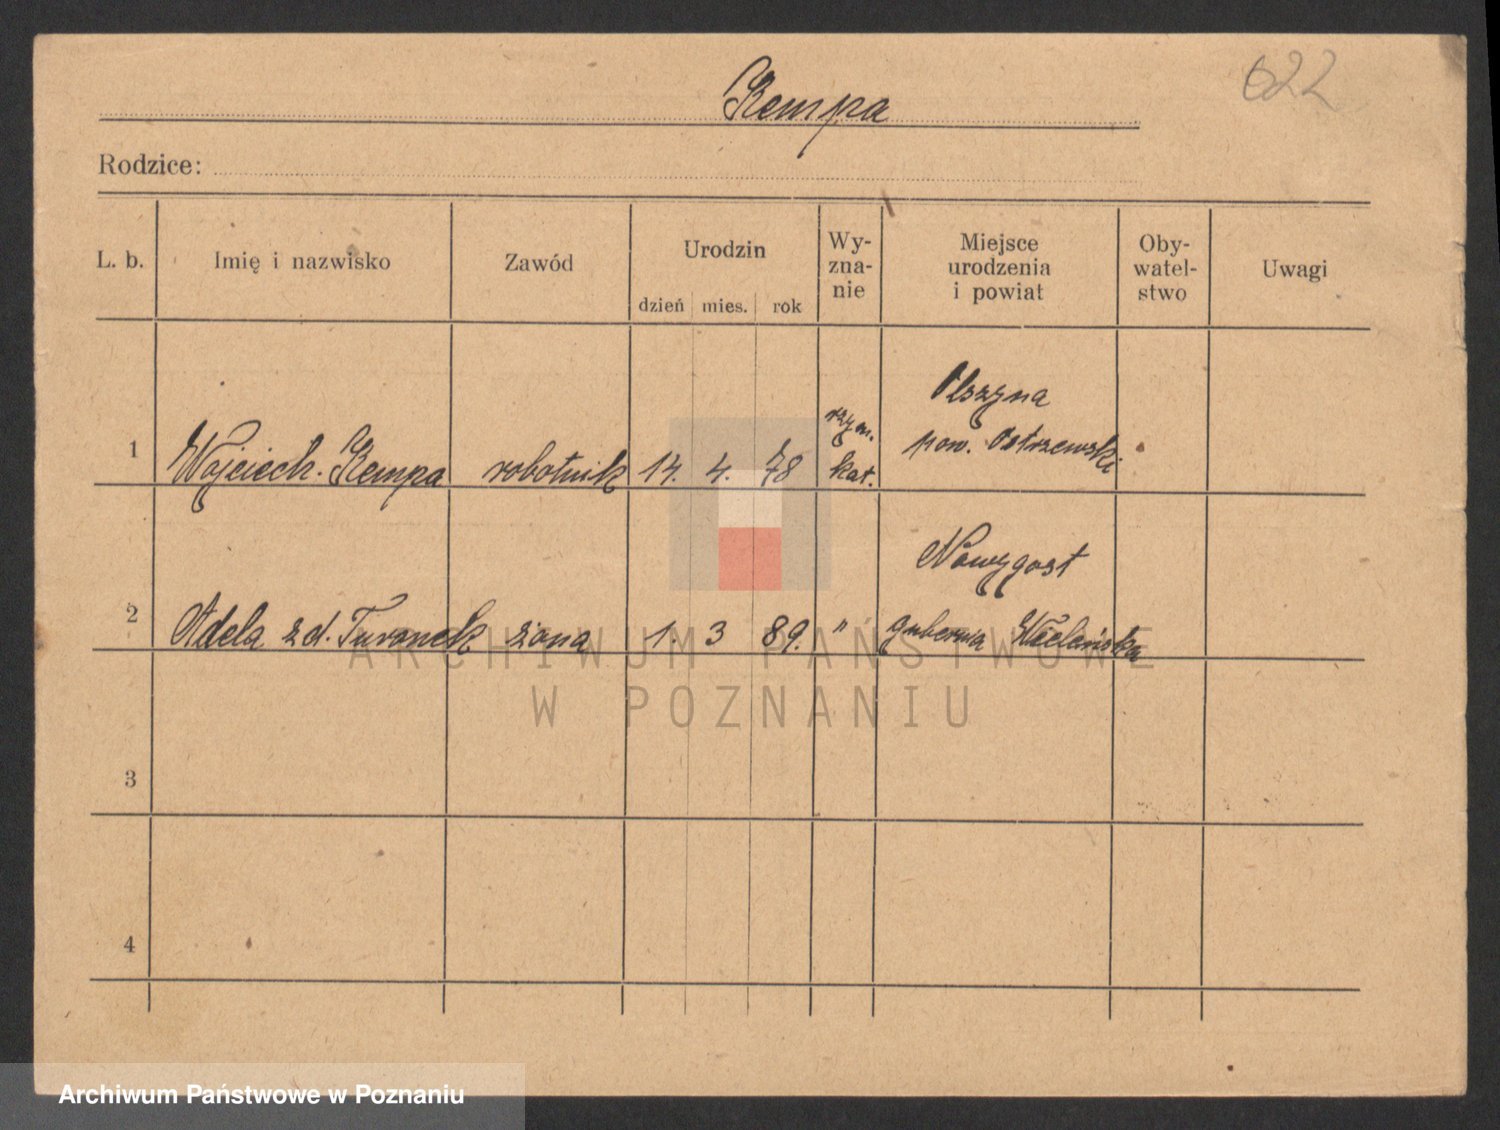 Kempa
622
Rodzice:
L. b. Imię i nazwisko Zawód Urodzin dzień mies. rok Wy-zna-nie Miejsce urodzenia i powiat Oby-watel-stwo Uwagi
Olszyna
rzym. pow. Ostrzewski
1 Wojciech Kempa robotnik 14. 4. 78 kat.
Nowygost
2 Adela z d. Turanek żona 1. 3 89. " gubernia
3
4
ARCHIWUM PAŃSTWOWE
W POZNANIU
Archiwum Państwowe w Poznaniu